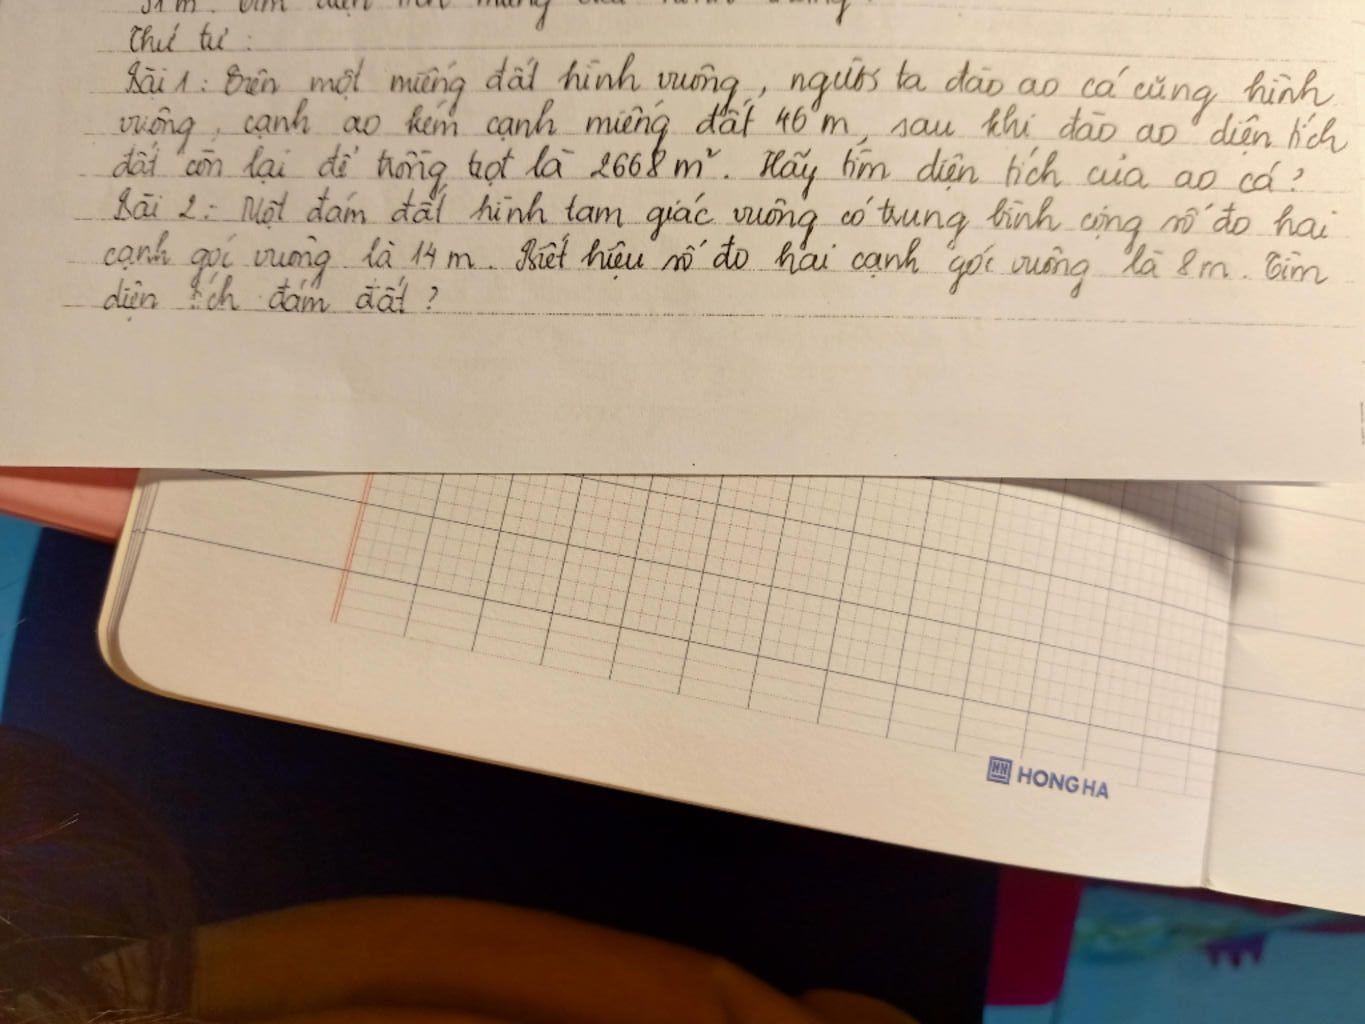 Thứ tư :
Bài 1 : Trên một miếng đất hình vuông, người ta đào ao cá cũng hình
vuông, cạnh ao kém cạnh miếng đất 46 m, sau khi đào ao diện tích
đất còn lại để trồng trọt là 2668 m². Hãy tìm diện tích của ao cá ?
Bài 2 : Một đám đất hình tam giác vuông có trung bình cộng số đo hai
cạnh góc vuông là 14 m. Biết hiệu số đo hai cạnh góc vuông là 8 m. Tìm
diện tích đám đất ?
HONG HA